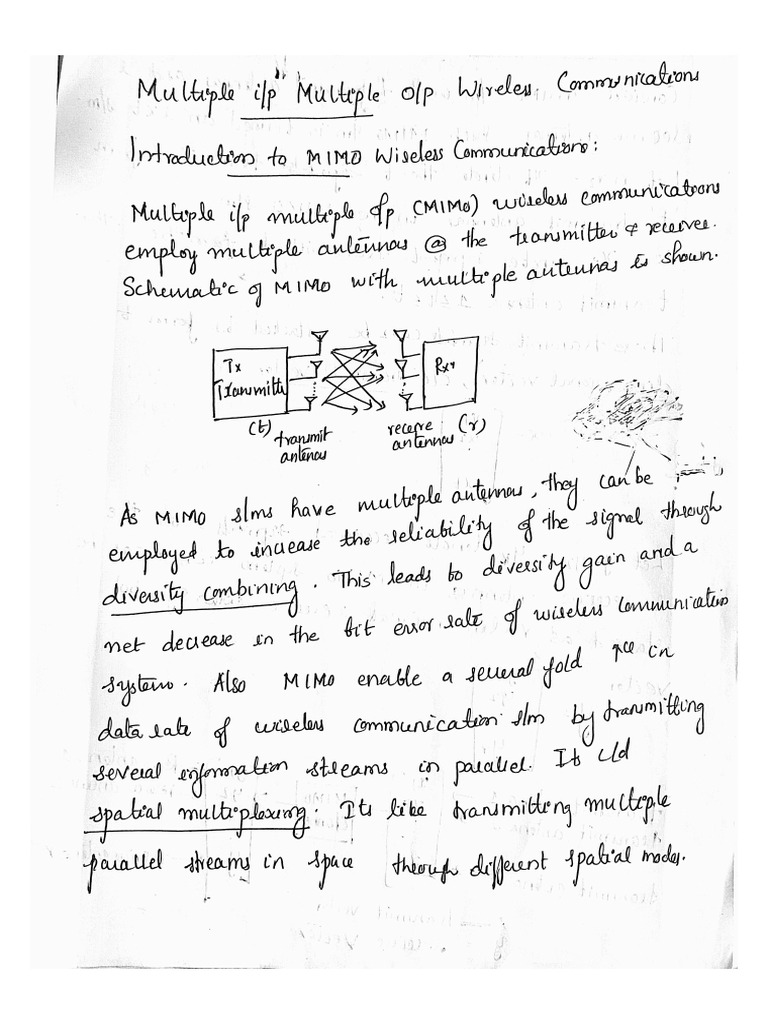 Multiple i/p Multiple o/p Wireless Communications
Introduction to MIMO Wireless Communications:
Multiple i/p multiple o/p (MIMO) wireless communications
employ multiple antennas @ the transmitter & receiver.
Schematic of MIMO with multiple antennas is shown.
Tx
Transmitter
Rxr
(t)
transmit
antennas
receive
antennas
(r)
As MIMO s/ms have multiple antennas, they can be
employed to increase the reliability of the signal through
diversity combining. This leads to diversity gain and a
net decrease in the bit error rate of wireless communication
system. Also MIMO enable a several fold ↑ce in
data rate of wireless communication s/m by transmitting
several information streams in parallel. Its c/d
spatial multiplexing. Its like transmitting multiple
parallel streams in space through different spatial modes.